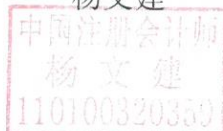 杨文建
中国注册会计师
杨文建
110100320359